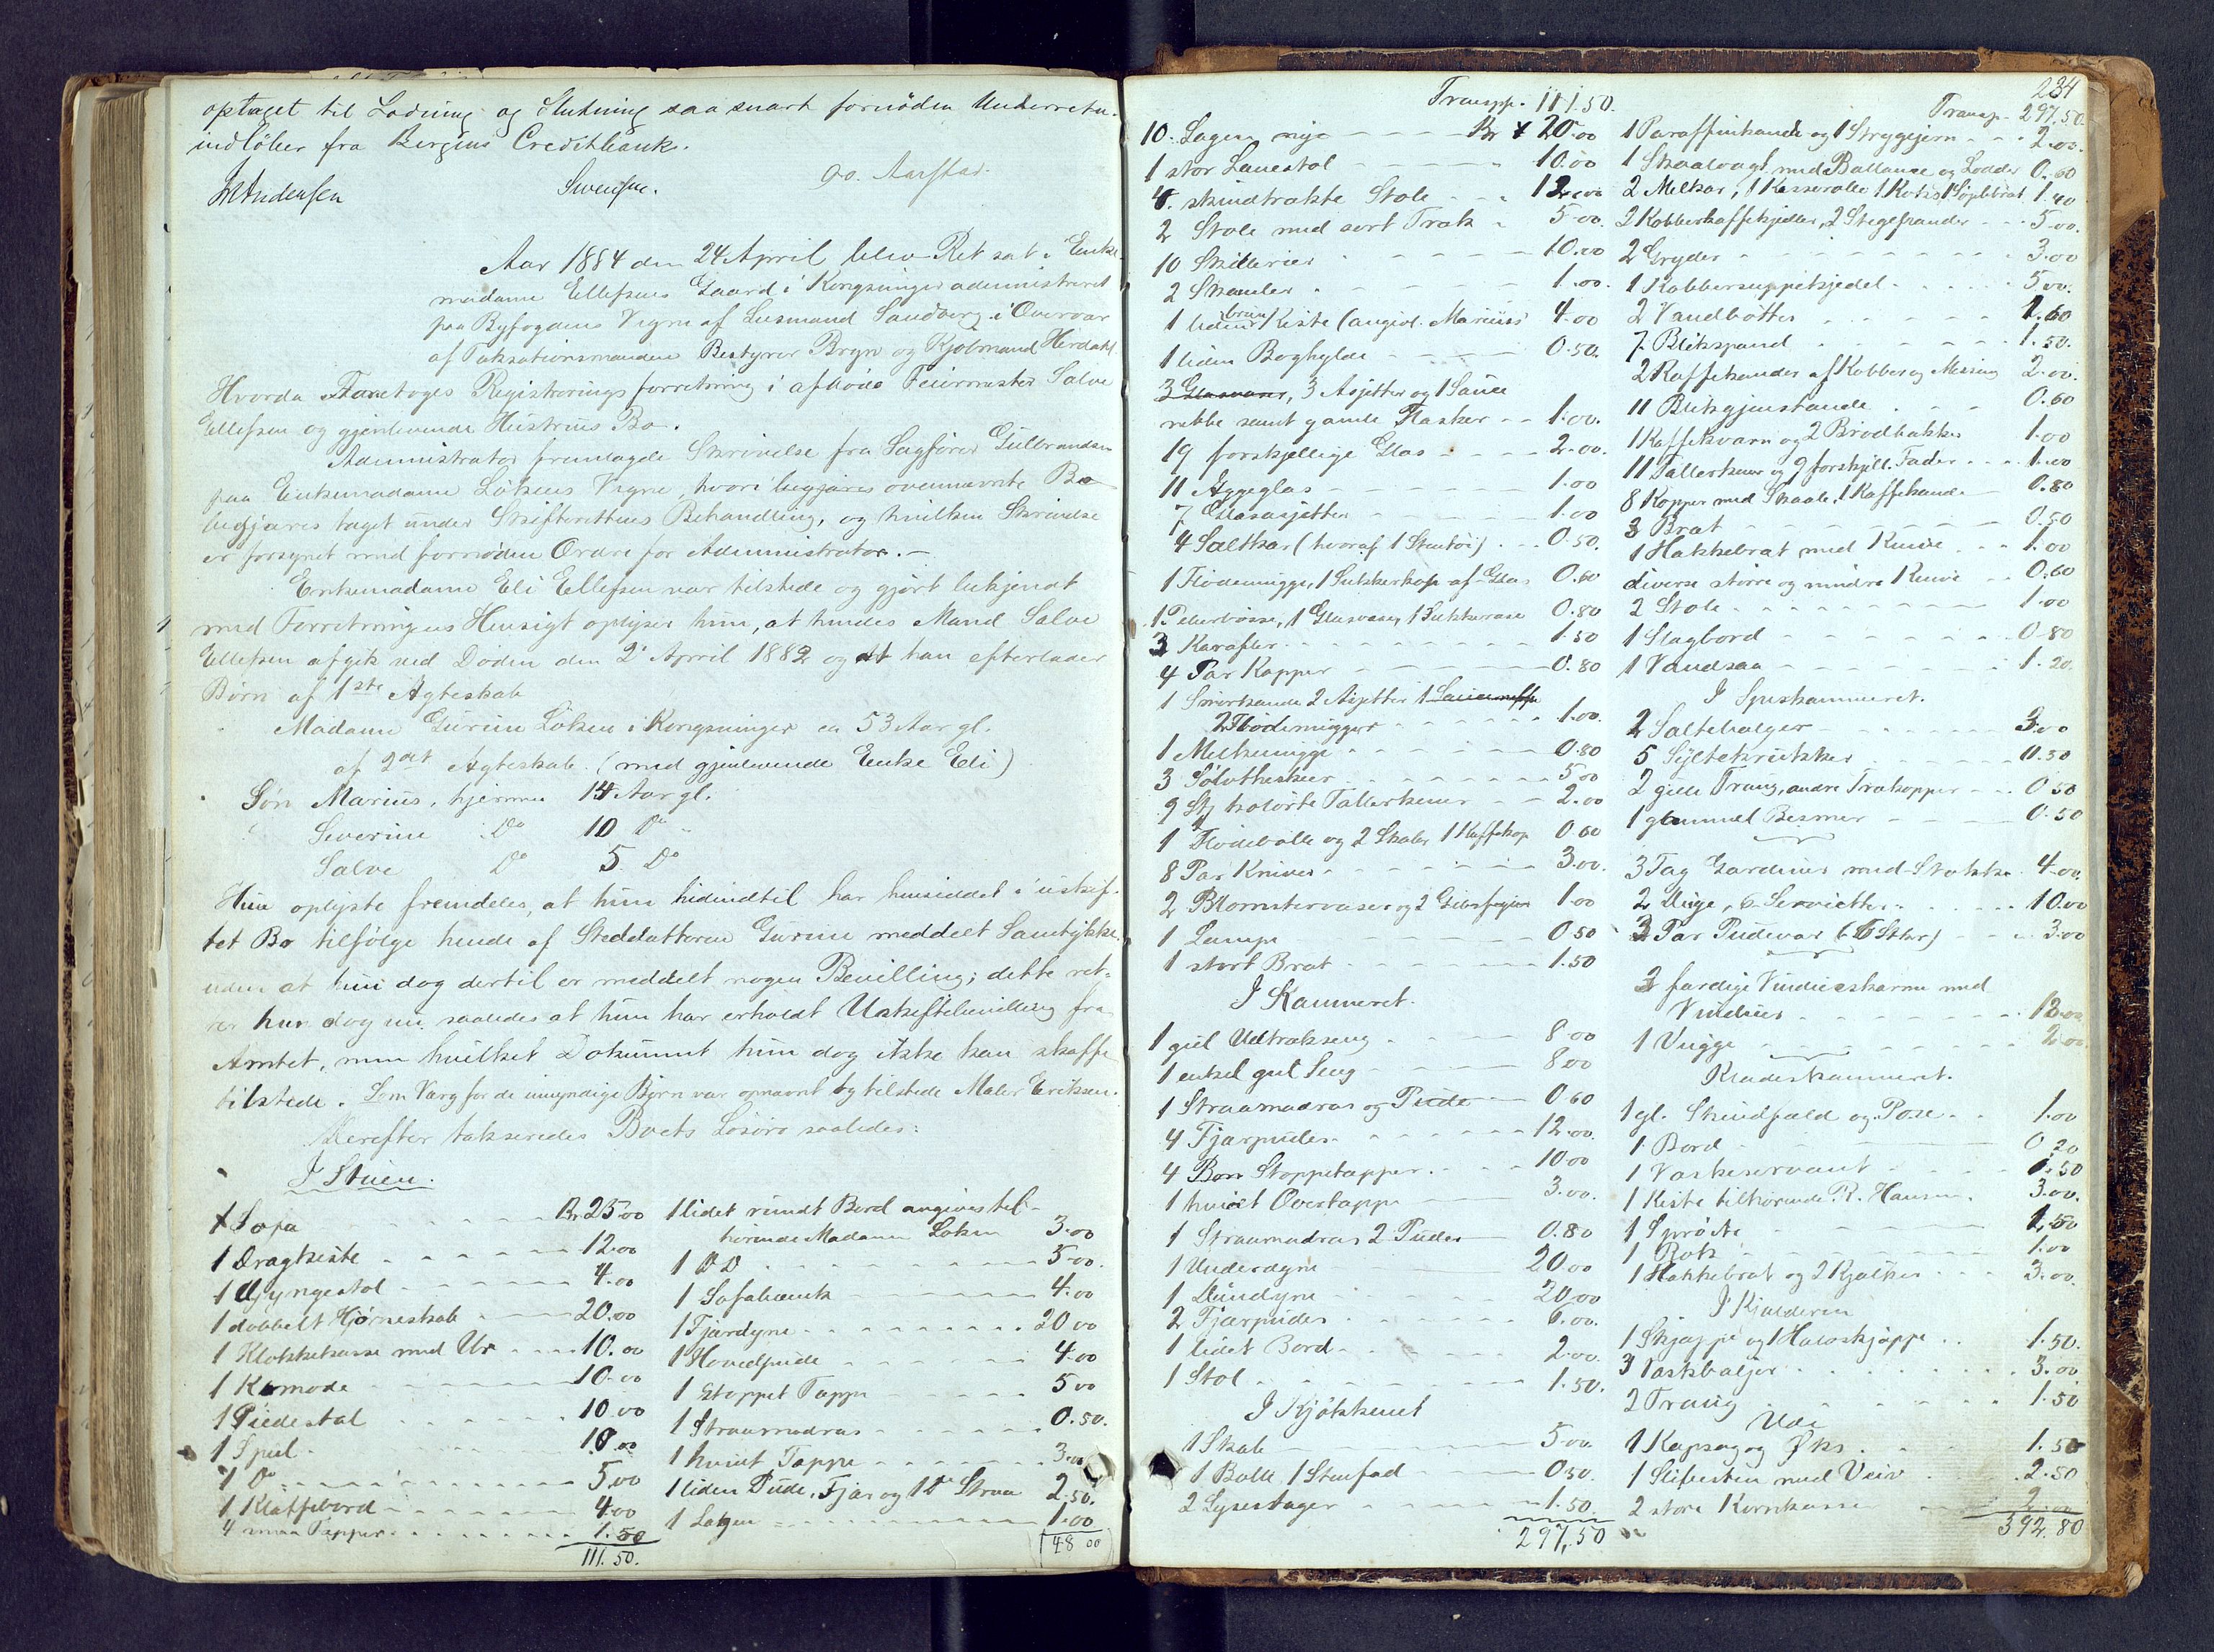 optaget til Lodning og Slutning saa snart fornöden Underretn.
indlöber fra Bergens Creditbank.
Andersen Svensen. Aarstad.
Aar 1884 den 24 April blev Ret sat i Enke-
madame Ellefsens Gaard i Kongsvinger administreret
paa Byfogdens Vegne af Lensmand Sandberg i Overvær
af Taksationsmændene Bestyrer Bryn og Kjøbmand Herdahl.
Hvorda Foretoges Registreringsforretning i afdöde Feiermester Salve
Ellefsen og gjenlevende Hustrus Bo.
Administrator fremlagde Skrivelse fra Sagförer Gulbrandsen
paa Enkemadame Lökens Vegne, hvori begjæres ovennævnte Bo
begjæres taget under Skifterettens Behandling, og hvilken Skrivelse
er forsynet med fornöden Ordre for Administrator. —
Enkemadame Eli Ellefsen var tilstede og gjort bekjendt
med Forretningens Hensigt oplyser hun, at hendes Mand Salve
Ellefsen afgik ved Döden den 2' April 1882 og at han efterlader
Børn af 1ste Ægteskab
Madame Gurine Löken i Kongsvinger ca 53 Aar gl.
af 2det Ægteskab (med gjenlevende Enke Eli)
Sön Marius, hjemme 14 Aar gl.
Severine Do 10 Do
Salve Do 5 Do
Hun oplyste fremdeles, at hun hidindtil har hensiddet i uskif-
tet Bo tilfölge hende af Steddatteren Gurine meddelt Samtykke,
uden at hun dog dertil er meddelt nogen Bevilling; dette ret-
ter hun dog nu saaledes at hun har erholdt Uskiftebevilling fra
Amtet, men hvilket Dokument hun dog ikke kan skaffe
tilstede. Som Værge for de umyndige Børn var opnævnt og tilstede Maler Eriksen.
Derefter takseredes Boets Lösöre saaledes:
I Stuen.
1 Sofa Kr 25.00
1 Dragkiste 12.00
1 Gyngestol 4.00
1 dobbelt Hjørneskab 20.00
1 Klokkekasse med Ur 10.00
1 Komode 10.00
1 Piedestal 10.00
1 Speil 10.00
1 Do 5.00
1 Klaffebord 4.00
4 smaa Tepper 1.50
111.50.
1 lidet rundt Bord angives til-
hörende Madame Løken 3.00
1 DO 5.00.
1 Sofabænk 4.00
1 Fjærdyne 20.00
1 Hovedpude 4.00
1 Stoppet Teppe 5.00
1 Straamadras 0.50.
1 hvidt Teppe 3.00
1 liden Pude, Fjær og 1 D Straa 2.50.
1 Lagen 1.00
48.00
Transp. 111.50.
10. Lagen nye Kr 20.00
1 stor Lænestol 10.00
4. skindtrukte Stole 12.00
2 Stole med sort Træk 5.00.
10 Skilderier 10.00
2 Skamler 1.00.
1 liden brun Kiste (angivl. Marius) 4.00
1 liden Boghylde 0.50.
3 Glasvaser, 3 Asjetter og 1 Sauce
nebbe samt gamle Flasker 1.00.
19 forskjellige Glas 2.00.
11 Æggeglas 1.00
7 Glasasjetter 1.00
4 Saltkar (hvoraf 1 Stentöi) 0.50.
1 Flödemugge, 1 Sukkerkop af Glas 0.60
1 Peberbösse, 1 Glasvase, 1 Sukkervase 0.80
3 Karafler 1.50
4 Par Kopper 0.80
1 Smörkande 2 Asjetter
2 Flödemugger 1.00.
1 Melkemugge 0.80
3 Sølvtheskeer 5.00
9 Stk kolörte Tallerkener 2.00
1 Flödebolle og 2 Skaaler 1 Kaffekop 0.60
8 Par Knive 3.00.
2 Blomstervaser og 2 Gibsfigurer 1.00
1 Lampe 0.50
1 stort Bræt 1.50
I Kammeret.
1 gul Udtrækseng 8.00
1 enkel gul Seng 8.00
1 Straamadras og Pude 0.60
4 Fjærpuder 12.00.
4 Stoppetepper 10.00
1 hvidt Overteppe 3.00.
1 Straamadras 2 Puder 0.80
1 Underdyne 20.00
1 Dundyne 20.00
2 Fjærpuder 6.00.
1 lidet Bord 2.00.
1 Stol 1.50.
I Kjökkenet
1 Skab 5.00
1 Bolle 1 Stenfad 0.50.
2 Lysestager 1.50.
297,50
234
Transp. 297.50
1 Paraffinkande og 1 Strygejern 2.00.
1 Skaalvægt med Ballance og Lodder 0.60
2 Melkar, 1 Kasserolle 1 1.40
2 Kobberkaffekjedler, 2 Stegepander 5.00.
2 Gryder 3.00
1 Kobbersuppekjedel 5.00.
2 Vandbötter 1.60
7 Blikspand 1.50.
2 Kaffekander af Kobber og Messing 2.00.
11 Blikgjenstande 0.60
1 Kaffekværn og 2 Brödbakker 1.00
11 Tallerkener og 9 forskjell. Fade 1.00
8 Kopper med Skaale, 1 Kaffekande 0.80
3 Bræt 0.50
1 Hakkebræt med Knive 1.00
diverse större og mindre Knive 0.60
2 Stole 1.00
1 Slagbord 0.80
1 Vandsaa 1.20.
I Spiskammeret.
2 Saltehalger 3.00
5 Syltekrukker 0.50
2 gule Traug, andre Trækopper 0.50
1 gammel Besmer 0.50
3 Fag Gardiner med Stokke 4.00.
2 Duge, 6 Servietter 10.00
3 Par Pudevar (6 Stkr) 3.00
2 færdige Vinduskarme med
Vinduer 12.00
1 Vugge 2.00.
Klædeskammeret.
1 gl. Skindfæld og Pose 1.00
1 Bord 0.20
1 Vaskeservant 0.50
1 Kiste tilhörende R. Hansen. 3.00.
1 Spröite 1.50
1 Rok 1.00
1 Hakkebræt og 2 Kjælker 3.00.
I Kjælderen
1 Skjæppe og 1 Halvskjæppe 1.50.
3 Vaskbaljer 3.00
2 Traug 1.50
Ude
1 Kapsag og Öks 1.50
1 Slibesten med Veiv 2.50
2 store Kornkasser 2.00
392.80